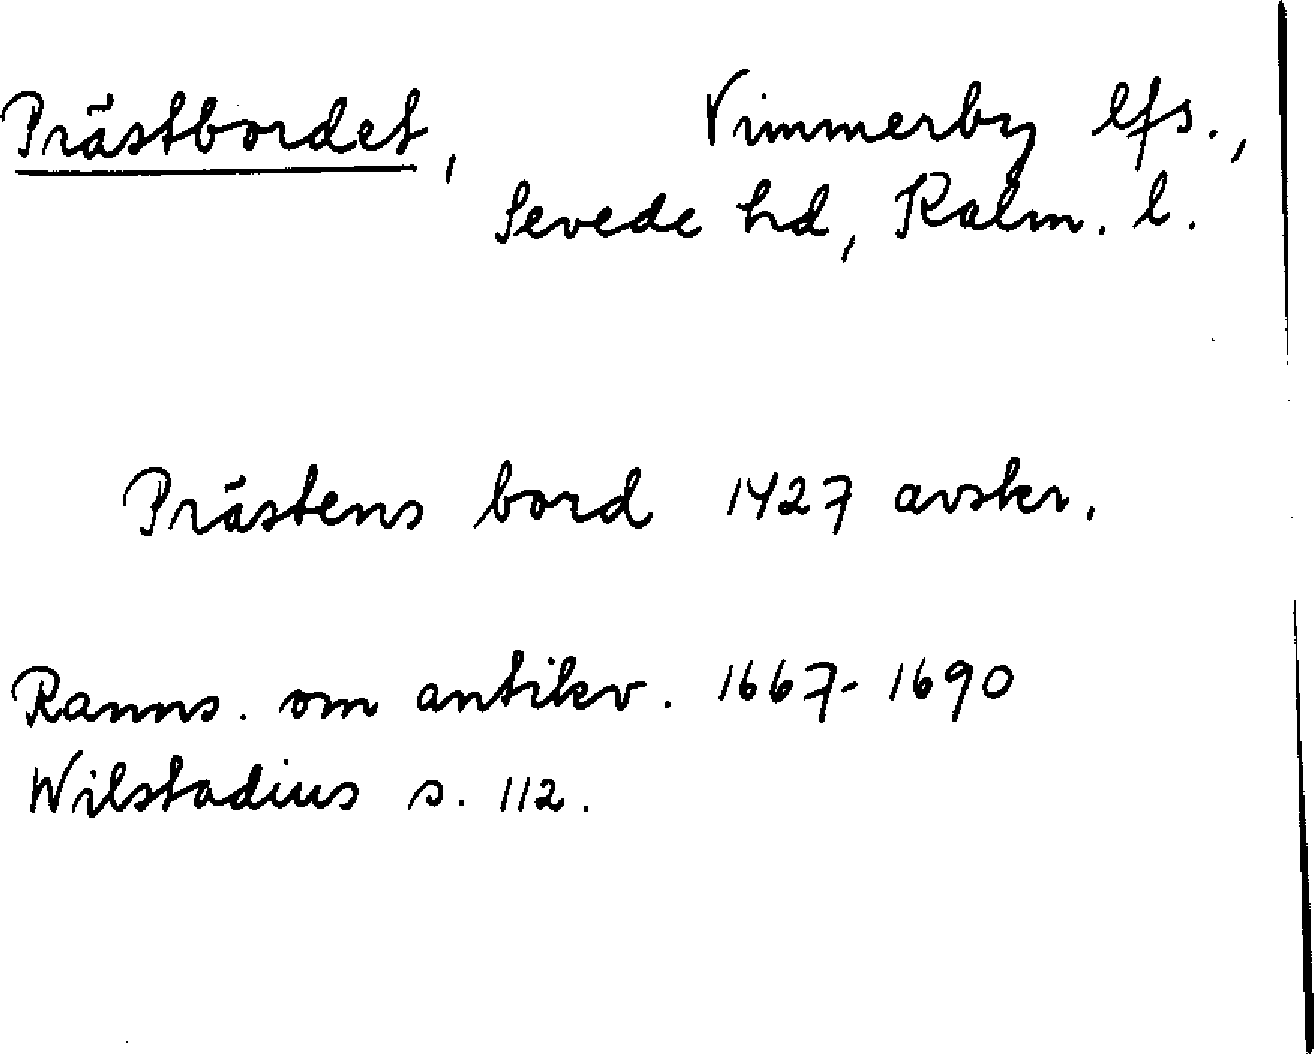 Prästbordet, Vimmerby lfs.,
Sevede hd, Kalm. l.
Prästens bord 1427 avskr.
Ranns. om antikv. 1667-1690
Wilstadius s. 112.